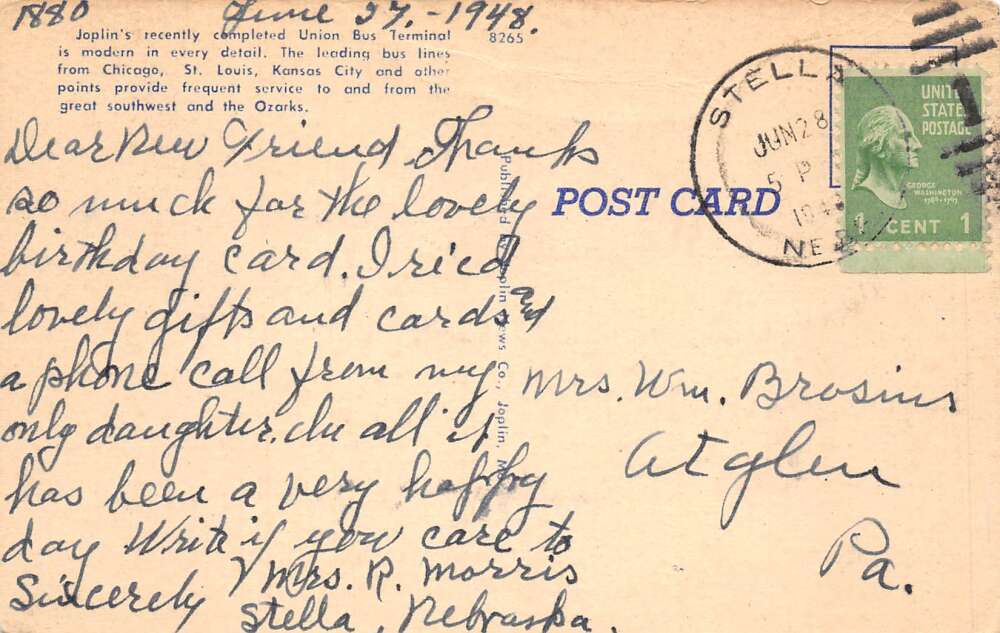 1880 June 27.-1948.
Joplin's recently completed Union Bus Terminal
is modern in every detail. The leading bus lines
from Chicago, St. Louis, Kansas City and other
points provide frequent service to and from the
great southwest and the Ozarks.
8265
Dear New Friend Thanks
so much for the lovely
birthday card. I rec'd
lovely gifts and cards and
a phone call from my
only daughter. In all it
has been a very happy
day Write if you care to
Sincerely Mrs. R. Morris
Stella, Nebraska.
POST CARD
STELLA
JUN 28
5 P
NEBR
UNITED
STATES
POSTAGE
GEORGE
WASHINGTON
1789-1797
1 CENT 1
Mrs. Wm. Brosius
Atglen
Pa.
Published by Joplin News Co., Joplin, Mo.